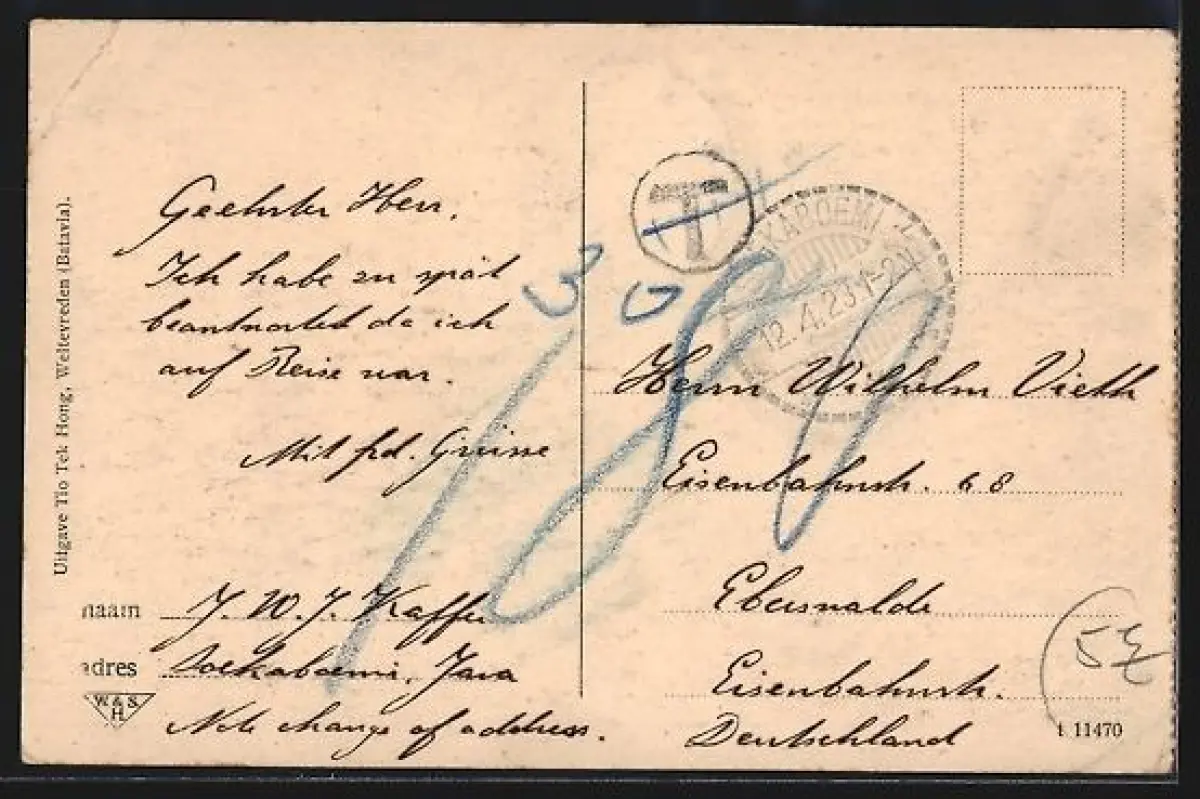 Uitgave Tio Tek Hong, Weltevreden (Batavia).
Geehrter Herr,
Ich habe zu spät
beantwortet da ich
auf Reise war.
Mit frd. Grüsse
naam J. W. J. Kaffer
adres Soekaboemi, Java
W. & S.
H.
Note change of address.
T
KABOEMI
12.4.23 1-2N
30
180
Herrn Wilhelm Vieth
Eisenbahnstr. 68
Eberswalde
Eisenbahnstr.
Deutschland
t 11470